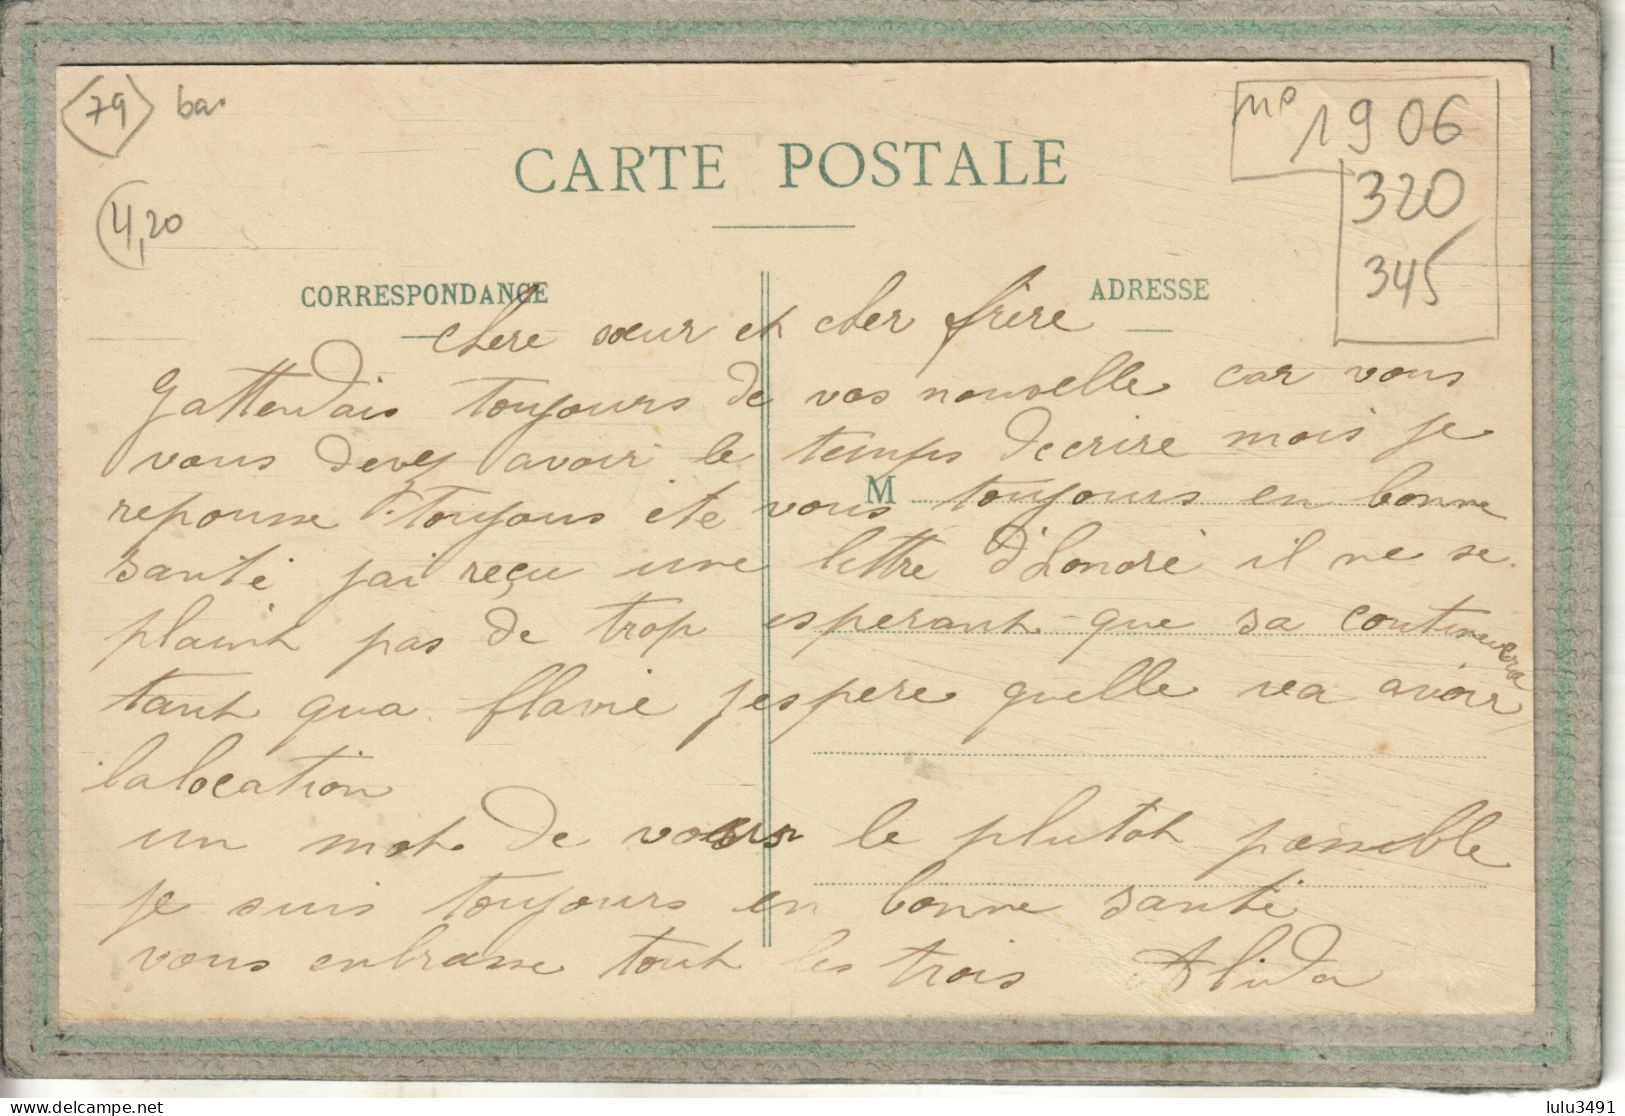 79 ba.
MP 1906
CARTE POSTALE
320
4,20
345
CORRESPONDANCE
ADRESSE
chere sœur et cher frère
Jattendais toujours de vos nouvelle car vous
vous devez avoir le temps decrire mois je
M
repousse toujous ete vous toujours en bonne
santé jai reçu une lettre d'honoré il ne se
plaint pas de trop esperant que sa continuera
tant qua flavie jespere quelle vea avoir
lalocation
un mot de vous le plutot possible
je suis toujours en bonne santé
vous enbrasse tout les trois Alida
lulu3491